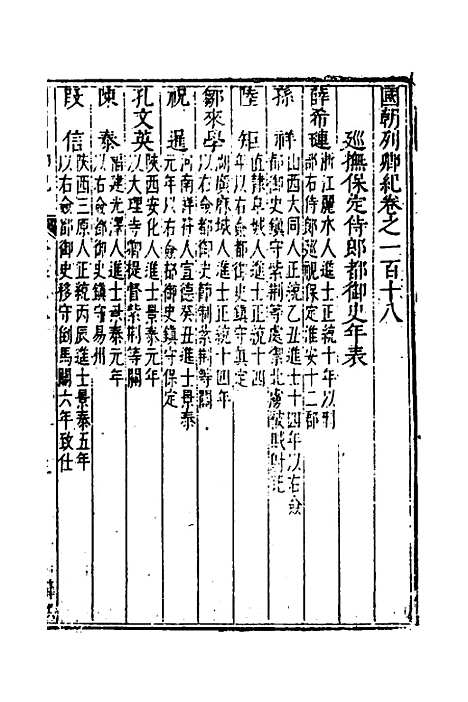 國朝列卿紀卷之一百十八
巡撫保定侍郎都御史年表
薛希璉
浙江麗水人進士正統十年以刑
部右侍郎巡視保定淮安十二郡
孫祥
山西大同人正統乙丑進士十四年以右僉
都御史鎮守紫荆等處
陸矩
直隷
人進士正統十四
年以右僉都御史鎮守真定
鄒來學
湖廣麻城人進士正統十四年
以右僉都御史節制紫荆等關
祝暹
河南祥符人宣德癸丑進士景泰
元年以右僉都御史鎮守保定
孔文英
陕西安化人進士景泰元年
以大理寺
提督紫荆等關
陳泰
福建光澤人進士景泰元年
以右僉都御史鎮守易州
段信
陕西三原人正統丙辰進士景泰五年
以右僉都御史移守倒馬關六年致仕